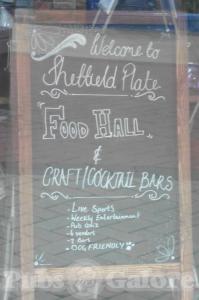 Welcome to
Sheffield Plate
FOOD HALL
&
CRAFT/COCKTAIL BARS
- Live Sports
- Weekly Entertainment
- Pub Quiz
- 6 vendors
- 2 Bars
- DOG FRIENDLY
Pubs Galore